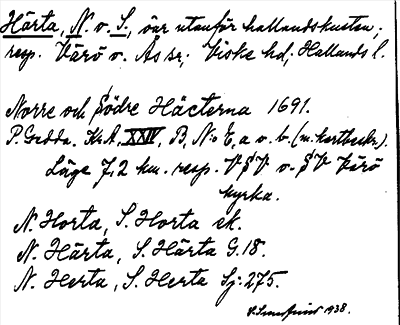 Härta, N. o. S., öar utanför hallandskusten;
resp. Värö o. Ås sn; Viske hd; Hallands l.
Norre och Södre Häcterna 1691.
P. Gedda. Kr.A. XXIV, B, N:o E, a o. b. (m. kartbeskr.).
Läge 7,2 km. resp. VSV o. SV Värö
kyrka.
N. Horta, S. Horta ek.
N. Härta, S. Härta G.18.
N. Herta, S. Herta Sj:275.
1938.